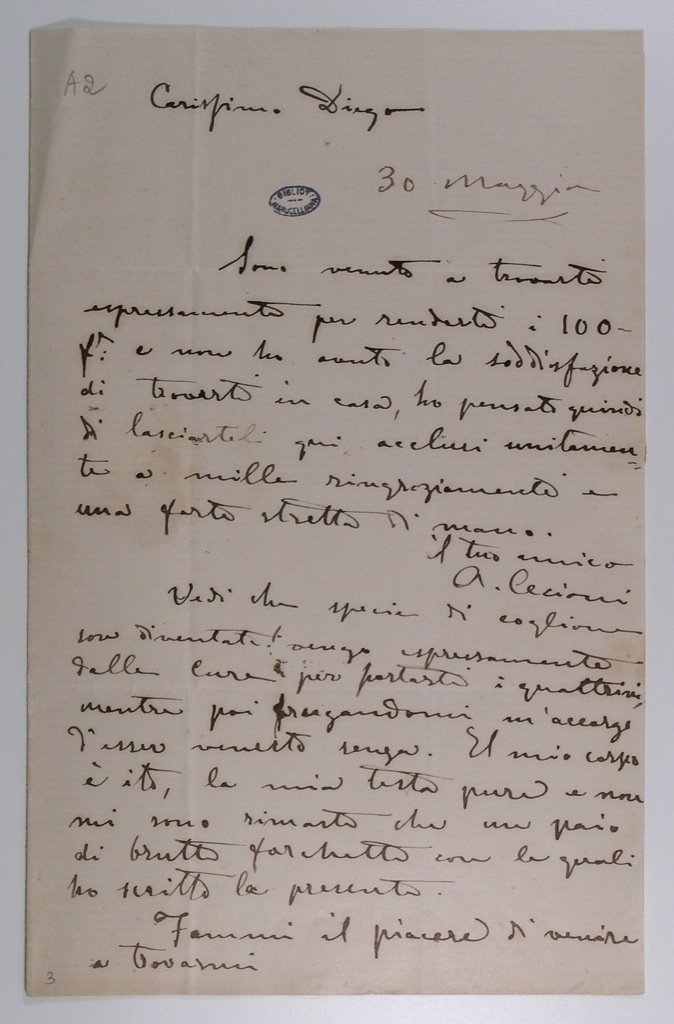 A2
Carissimo Diego
30 Maggio
BIBLIOT.
MARUCELLIANA
Sono venuto a trovarti
espressamente per renderti i 100-
fr: e non ho avuto la soddisfazione
di trovarti in casa, ho pensato quindi
di lasciarteli qui acclusi unitamen=
te a mille ringraziamenti e
una forte stretta di mano.
il tuo amico
A. Cecioni
Vedi che specie di coglione
son diventato! vengo espressamente
dalle Cure per portarti i quattrini,
mentre poi frugandomi m'accorgo
d'esser venuto senza. El mio corpo
è ito, la mia testa pure e non
mi sono rimaste che un paio
di brutte forchette con le quali
ho scritto la presente.
Fammi il piacere di venire
a trovarmi
3